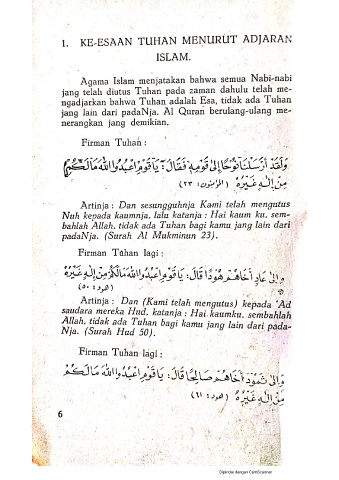 1. KE-ESAAN TUHAN MENURUT ADJARAN
ISLAM.
Agama Islam menjatakan bahwa semua Nabi-nabi
jang telah diutus Tuhan pada zaman dahulu telah me-
ngadjarkan bahwa Tuhan adalah Esa, tidak ada Tuhan
jang lain dari padaNja. Al Quran berulang-ulang me-
nerangkan jang demikian.
Firman Tuhan :
وَلَقَدْ اَرْسَلْنَا نُوْحًا اِلٰى قَوْمِهٖ فَقَالَ: يَا قَوْمِ اعْبُدُوا اللّٰهَ مَا لَكُمْ
مِنْ اِلٰهٍ غَيْرُهُ (المؤمنون: ٢٣)
Artinja : Dan sesungguhnja Kami telah mengutus
Nuh kepada kaumnja, lalu katanja : Hai kaum ku, sem-
bahlah Allah, tidak ada Tuhan bagi kamu jang lain dari
padaNja. (Surah Al Mukminun 23).
Firman Tuhan lagi :
وَاِلٰى عَادٍ اَخَاهُمْ هُوْدًا قَالَ: يَا قَوْمِ اعْبُدُوا اللّٰهَ مَا لَكُمْ مِنْ اِلٰهٍ غَيْرُهُ
(هود: ٥٠)
Artinja : Dan (Kami telah mengutus) kepada 'Ad
saudara mereka Hud, katanja : Hai kaumku, sembahlah
Allah, tidak ada Tuhan bagi kamu jang lain dari pada-
Nja. (Surah Hud 50).
Firman Tuhan lagi :
وَاِلٰى ثَمُوْدَ اَخَاهُمْ صَالِحًا قَالَ: يَا قَوْمِ اعْبُدُوا اللّٰهَ مَا لَكُمْ
مِنْ اِلٰهٍ غَيْرُهُ (هود: ٦١)
6
Dipindai dengan CamScanner